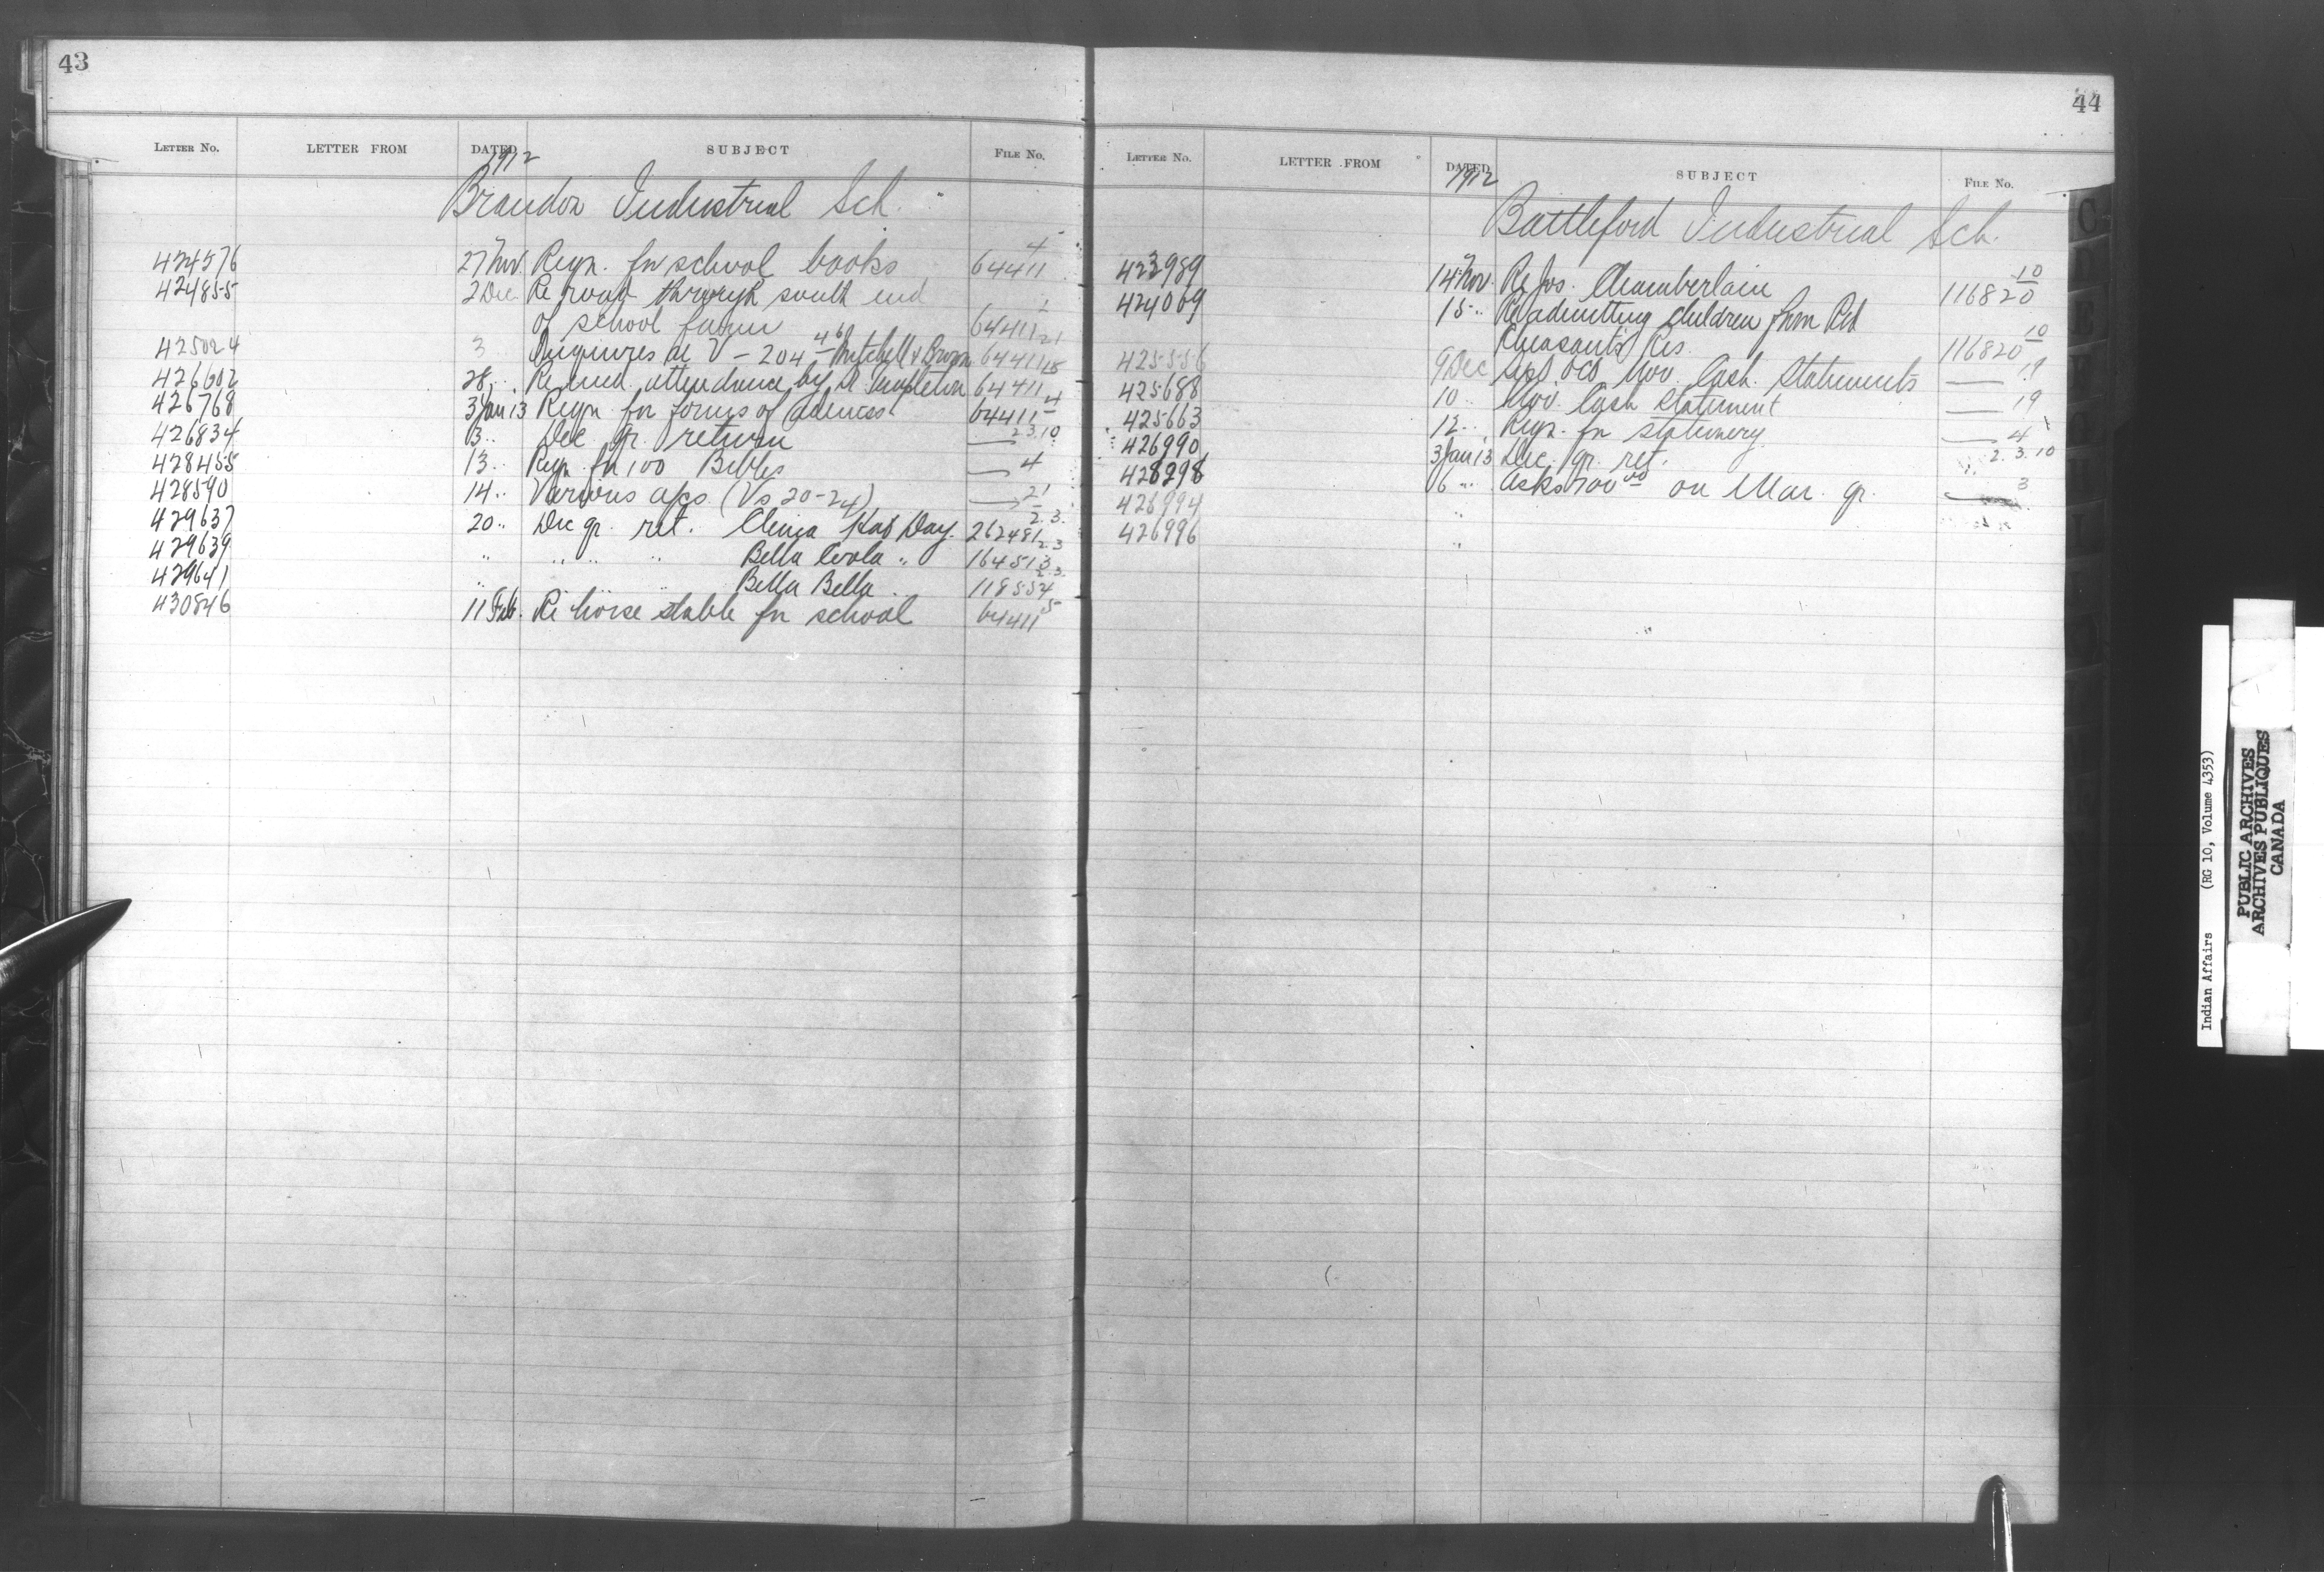 43
LETTER No. LETTER FROM DATED SUBJECT FILE No.
1912
Brandon Industrial Sch.
424576 27 Nov. Reqn. for school books 64411 4
424855 2 Dec. Re road through south end
of school farm 64411 1
425024 3 Inquires re V-204 4/6 Mitchell & Brown 64411 21
426602 28 " Re med. attendance by Dr Templeton 64411 15
426768 3 Jan 13 Reqn for forms of admiss 64411 4
426834 3 " Dec qr. return — 2.3.10
428455 13 " Reqn for 100 Bibles — 4
428590 14 " Various a/cs (Vs 20-24) — 21
429637 20 " Dec qr. ret. Day. 262481 2.3.
429639 " " " " Bella Coola " 164513 2.3
429641 " " " Bella Bella " 118554 2.3.
430846 11 Feb. Re horse stable for school 64411 5
44
LETTER No. LETTER FROM DATED SUBJECT FILE No.
1912
Battleford Industrial Sch.
423989 14 Nov. Re Jos. Chamberlain 116820 10
424009 15 " Re admitting children from Red
Pheasant's Res. 116820 10
425556 9 Dec Sept Oct Nov. Cash Statements — 19
425688 10 " Nov. Cash Statement — 19
425663 12 " Reqn. for stationery — 4
426990 3 Jan 13 Dec. qr. ret. 2.3.10
428298 6 " Asks 700.00 on Mar. qr. — 3
426994 "
426996 "
Indian Affairs (RG 10, Volume 4353)
PUBLIC ARCHIVES
ARCHIVES PUBLIQUES
CANADA